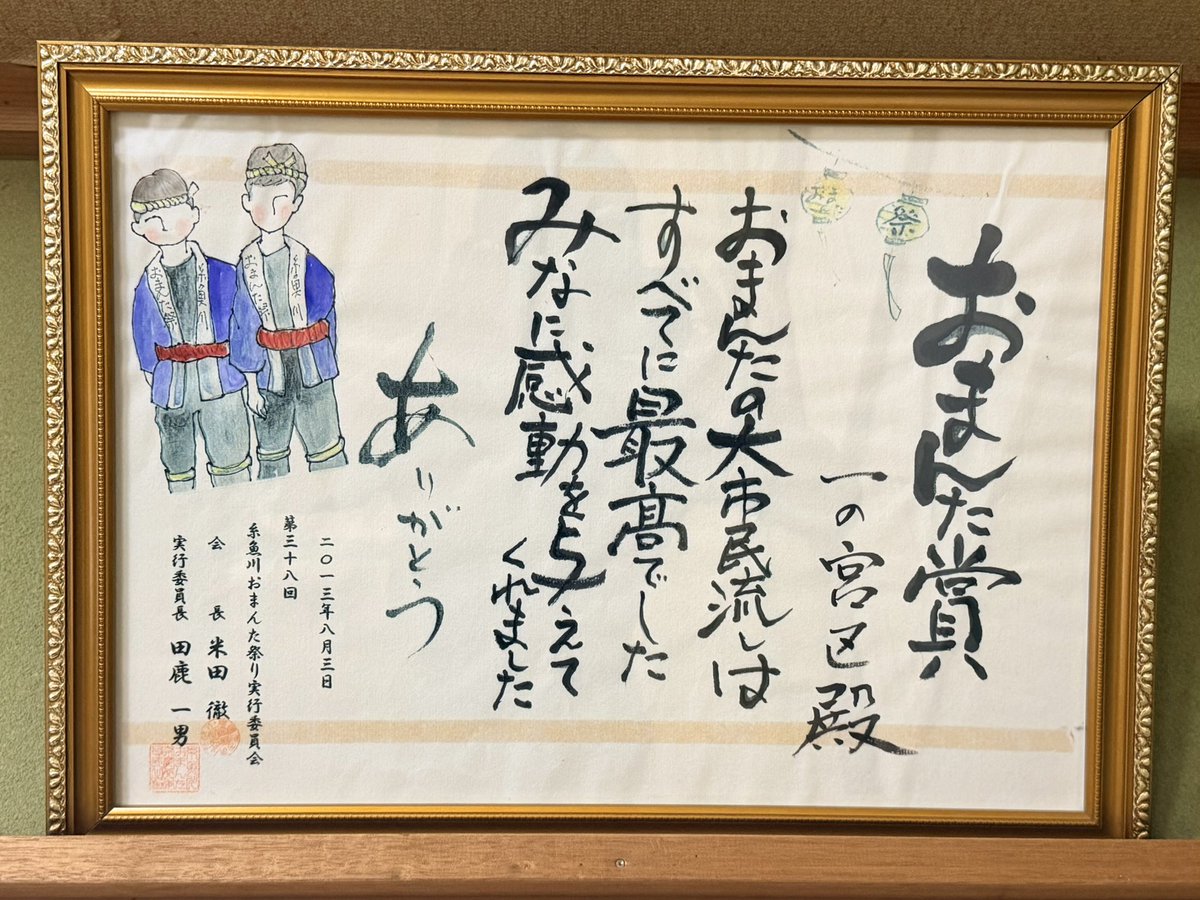 おまんた賞
一の宮区殿
おまんたの大市民流しは
すべてに最高でした
みなに感動を与えて
くれました
ありがとう
二〇一三年八月三日
第三十八回
糸魚川おまんた祭り実行委員会
会長 米田 徹
実行委員長 田鹿 一男
祭
糸魚川
おまんた祭
糸魚川
おまんた祭